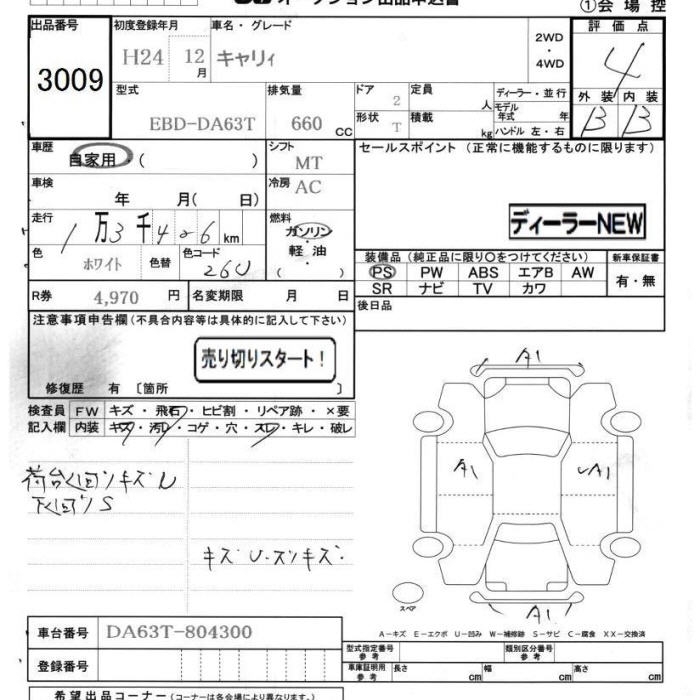 オークション出品申込書
①会場控
出品番号 初度登録年月 車名・グレード 2WD ・ 4WD 評価点
3009 H24 12月 キャリィ 4
型式 排気量 ドア 定員 ディーラー・並行 外装 内装
EBD-DA63T 660 CC 2 人 モデル年式 年 B B
形状 T 積載 kg ハンドル 左・右
車歴 シフト セールスポイント (正常に機能するものに限ります)
自家用・( ) MT
車検 冷房 AC
年 月( 日)
走行 燃料 ディーラーNEW
1万3千426km ガソリン
色 色替 色コード 軽・油
ホワイト 26U ( ・ )
装備品 (純正品に限り○をつけてください) 新車保証書
PS PW ABS エアB AW 有・無
SR ナビ TV カワ
R券 4,970 円 名変期限 月 日 後日品
注意事項申告欄(不具合内容等は具体的に記入して下さい)
売り切りスタート!
修復歴 有 〔箇所 〕
検査員 FW キズ・飛石・ヒビ割・リペア跡・×要
記入欄 内装 キズ・汚レ・コゲ・穴・スレ・キレ・破レ
荷台凹キズU
下回りS
キズU・スリキズ・
A1
A1
A1
A1
スペア
A-キズ E-エクボ U-凹み W-補修跡 S-サビ C-腐食 XX-交換済
車台番号 DA63T-804300
登録番号
型式指定番号 参考 類別区分番号 参考
車庫証明用 参考 長さ cm 幅 cm 高さ cm
希望出品コーナー(コーナーは各会場により異なります。)